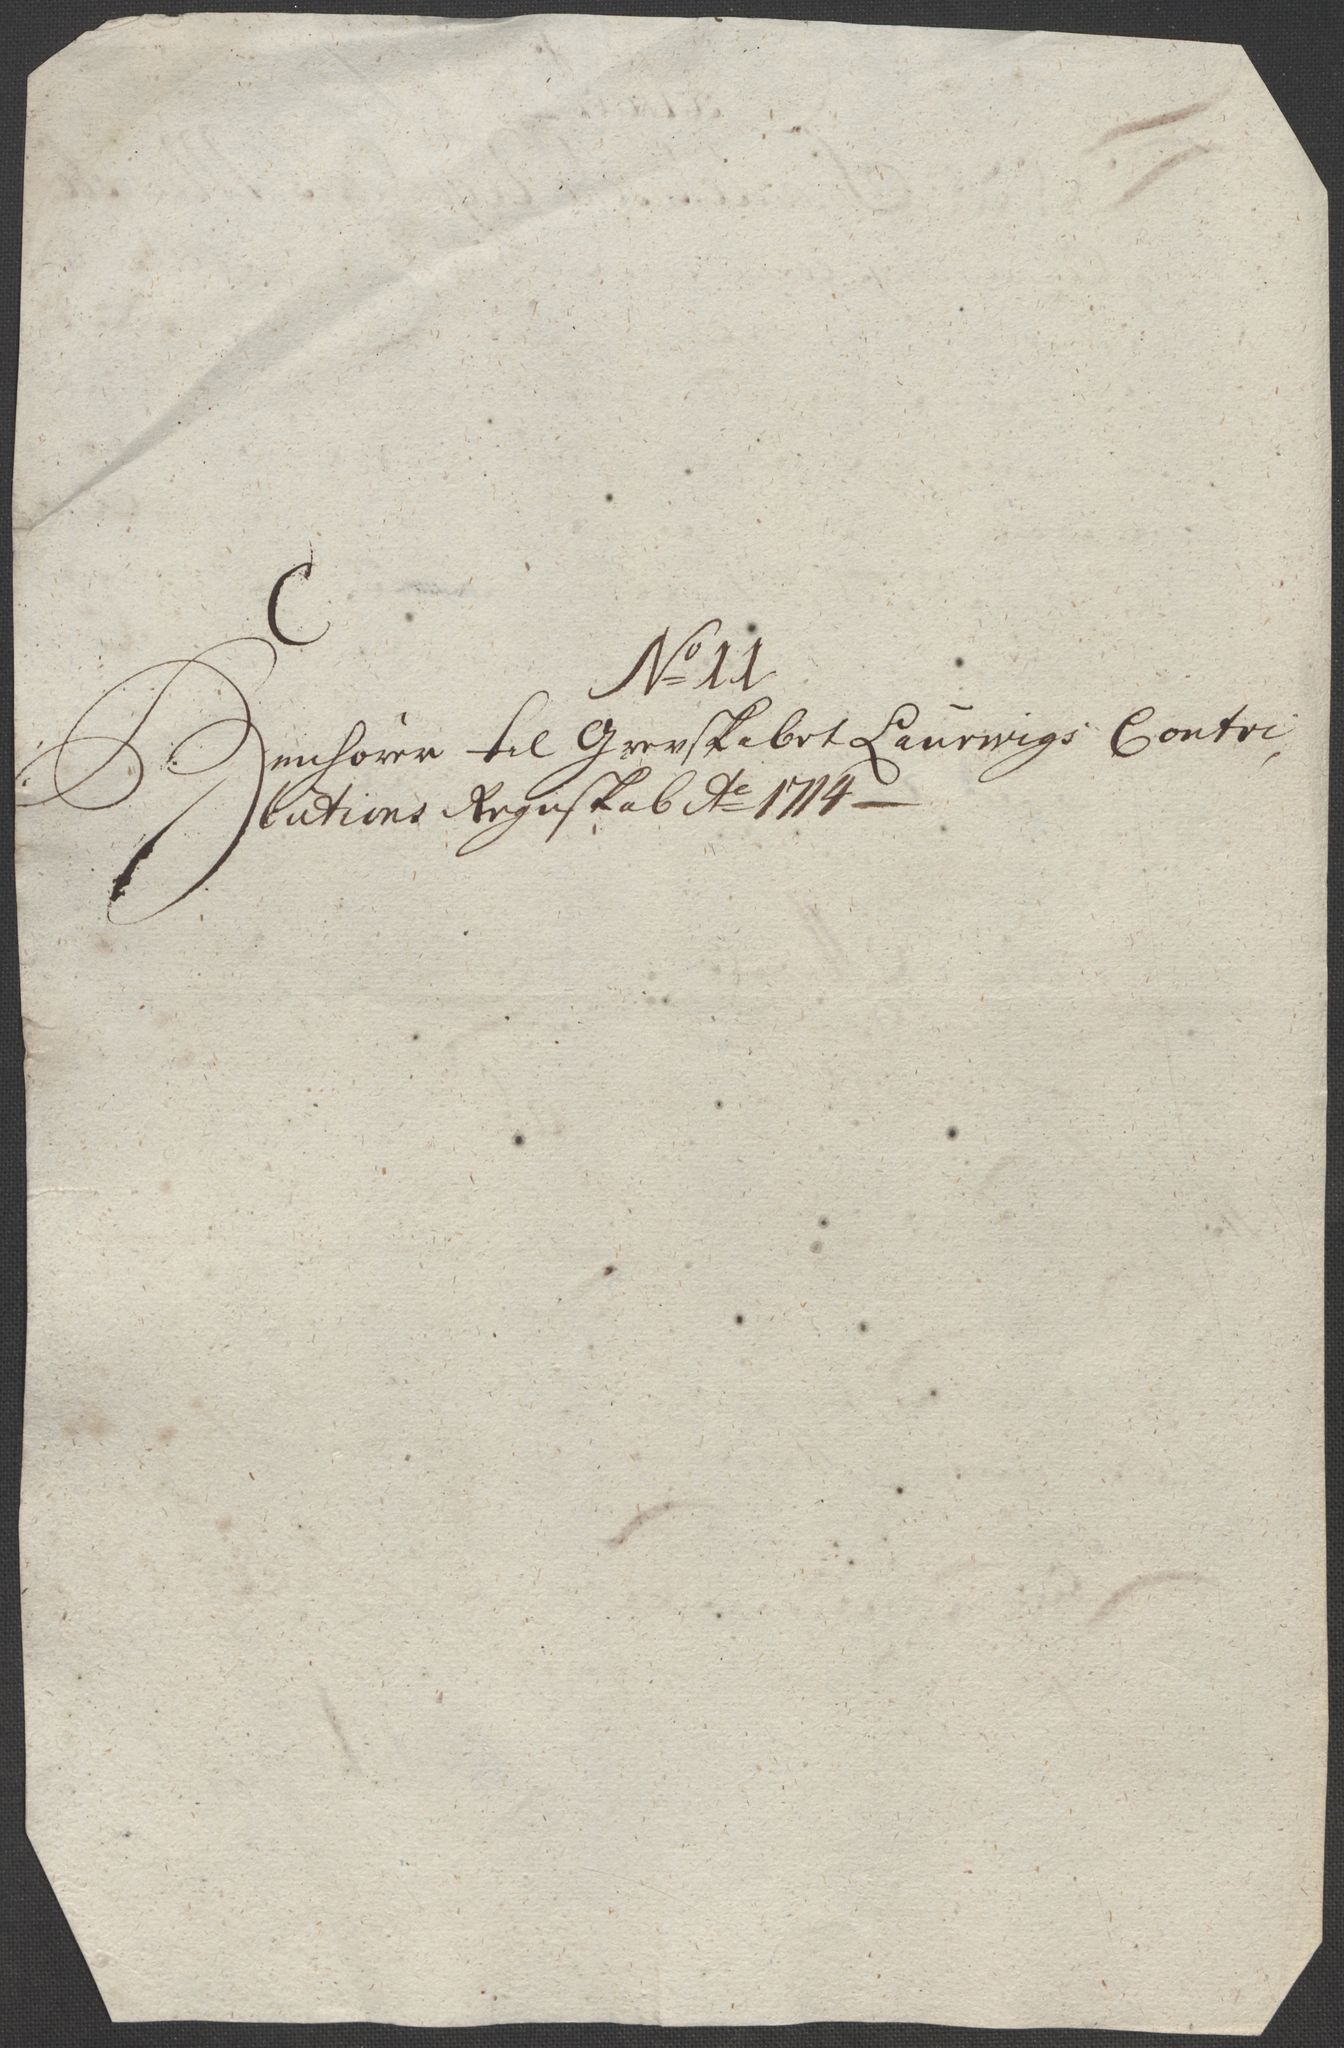 C
No 11
Henhører til Grevskabet Laurwigs Contri,
butions Regnskab Ao 1714